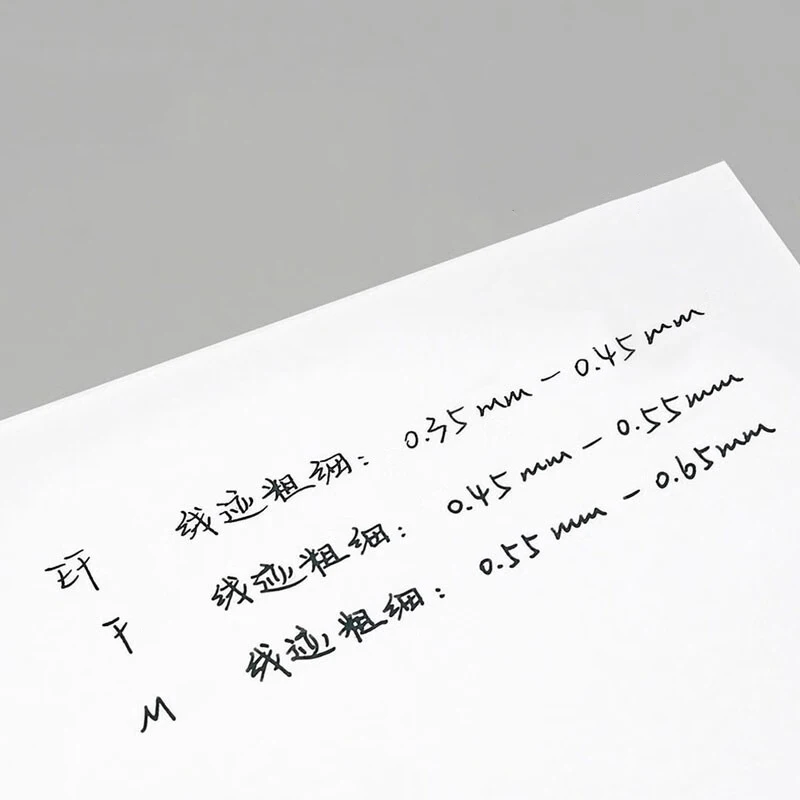 EF 线迹粗细: 0.35mm - 0.45mm
F 线迹粗细: 0.45mm - 0.55mm
M 线迹粗细: 0.55mm - 0.65mm